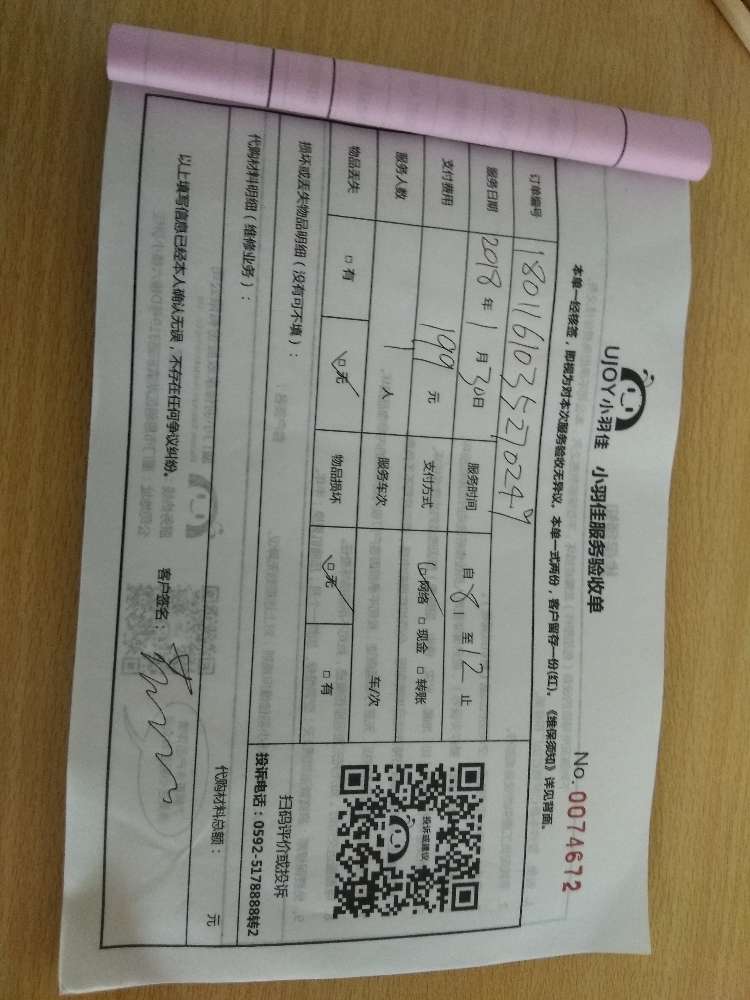 UJOY小羽佳 小羽佳服务验收单
No. 0074672
本单一经核签，即视为对本次服务验收无异议。本单一式两份，客户留存一份(红)。《维保须知》详见背面。
订单编号
服务日期 2018年1月30日 服务时间 自8至12止
支付费用 199元 支付方式 ☑网络 □现金 □转账
服务人数 1人 服务车次 车/次
物品丢失 □有 ☑无 物品损坏 ☑无 □有
损坏或丢失物品明细（没有可不填）：
投诉或建议
扫码评价或投诉
投诉电话：0592-5178888转2
代购材料明细（维修业务）：
代购材料总额： 元
以上填写信息已经本人确认无误，不存在任何争议纠纷。 客户签名：